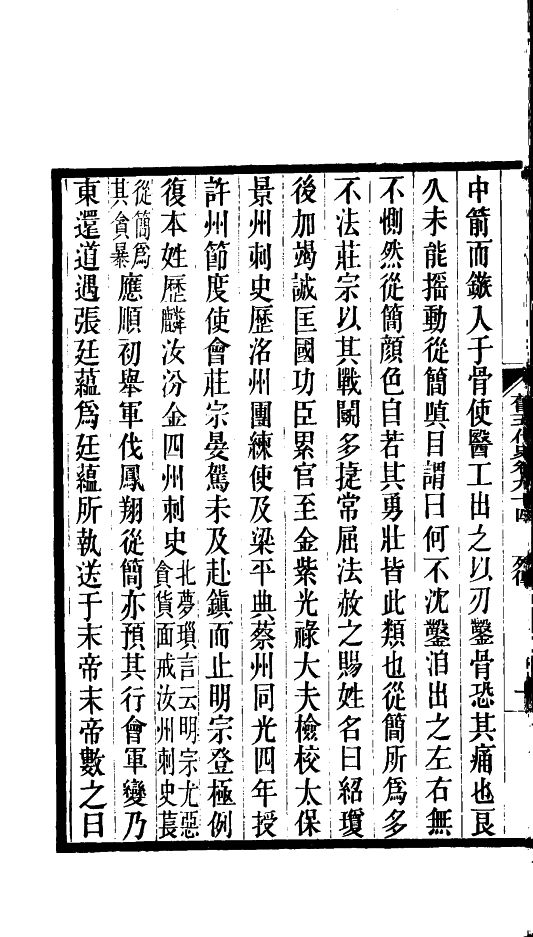 中箭而鏃入于骨使醫工出之以刃鑿骨恐其痛也良
久未能搖動從簡嗔目謂曰何不沈鑿洎出之左右無
不惻然從簡顏色自若其勇壯皆此類也從簡所爲多
不法莊宗以其戰鬭多捷常屈法赦之賜姓名曰紹瓊
後加竭誠匡國功臣累官至金紫光祿大夫檢校太保
景州刺史歷洺州團練使及梁平典蔡州同光四年授
許州節度使會莊宗晏駕未及赴鎭而止明宗登極例
復本姓歷麟汝汾金四州刺史北夢瑣言云明宗尤惡貪貨面戒汝州刺史萇
從簡爲其貪暴應順初舉軍伐鳳翔從簡亦預其行會軍變乃
東還道遇張廷蘊爲廷蘊所執送于末帝末帝數之曰
舊五代史卷九十四 列傳